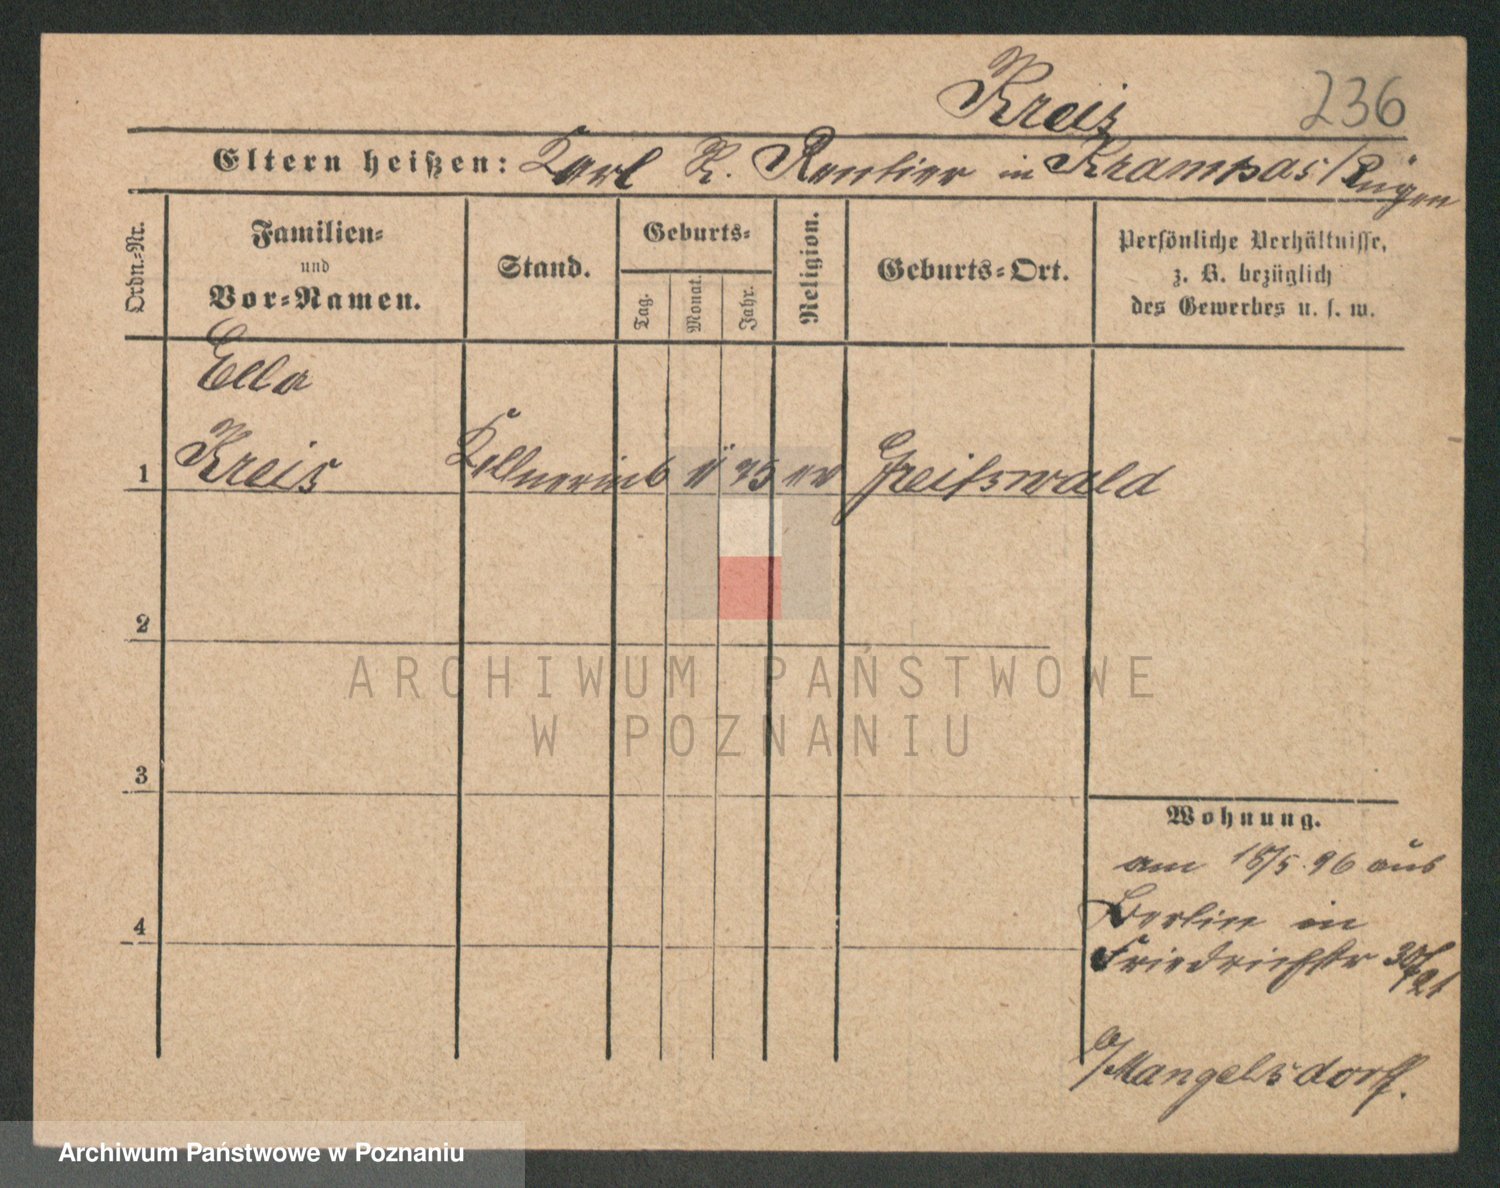 Kreis 236
Eltern heißen: Karl K. Rentier in Krampas / Rügen
Ordn.-Nr.
Familien-
und
Vor-Namen.
Stand.
Geburts-
Tag.
Monat.
Jahr.
Religion.
Geburts-Ort.
Persönliche Verhältnisse,
z. B. bezüglich
des Gewerbes u. s. w.
Ella
1 Kreis Kellnerin 6 11 75 ev Greifswald
2
3
4
Wohnung.
am 18/5. 96 aus
Berlin in
Friedrichstr 30/
21
b/Mangelsdorff.
ARCHIWUM PAŃSTWOWE
W POZNANIU
Archiwum Państwowe w Poznaniu